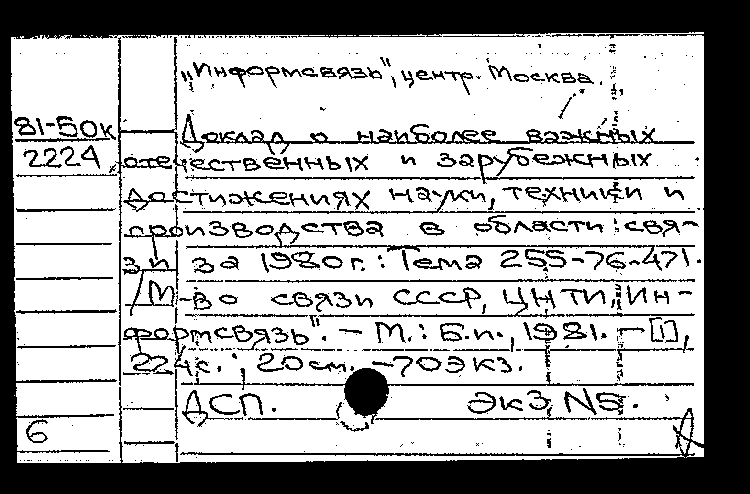 „Информсвязь", центр. Москва.
81-50к Доклад о наиболее важных
2224 отечественных и зарубежных
достижениях науки, техники и
производства в области свя-
зи за 1980г.: Тема 255-76-471.
/М-во связи СССР, ЦНТИ „Ин-
формсвязь". — М.: Б.и., 1981. — [],
224с.; 20см. — 70экз.
ДСП. Экз. N5.
6